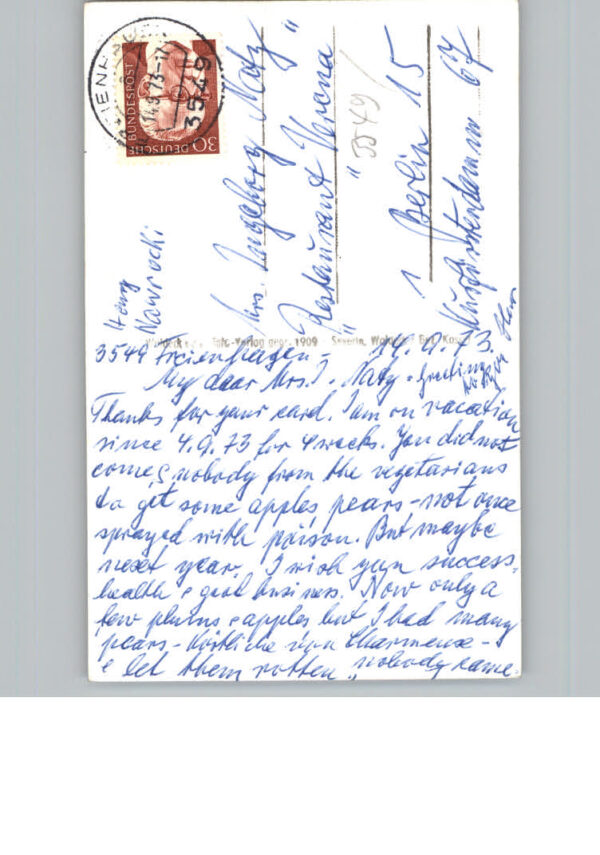 3549
14.9.73-17
DEUTSCHE BUNDESPOST
30
Mrs. Ingeborg Naty
"Restaurant Verona"
1 Berlin 15
Kurfürstendamm 67
3549
Nawrocki
Foto-Verlag gegr. 1909 - Severin,
3549 Freienhagen - 14.9.73.
My dear Mrs. I. Naty - Greetings
Thanks for your card. I am on vacation
since 4.9.73 for 4 weeks. You did not
come & nobody from the vegetarians
to get some apples, pears - not once
sprayed with poison. But maybe
next year. I wish you success,
health & good business. Now only a
few plums & apples but I had many
pears - Köstliche von Charneux -
& let them rotten, nobody came